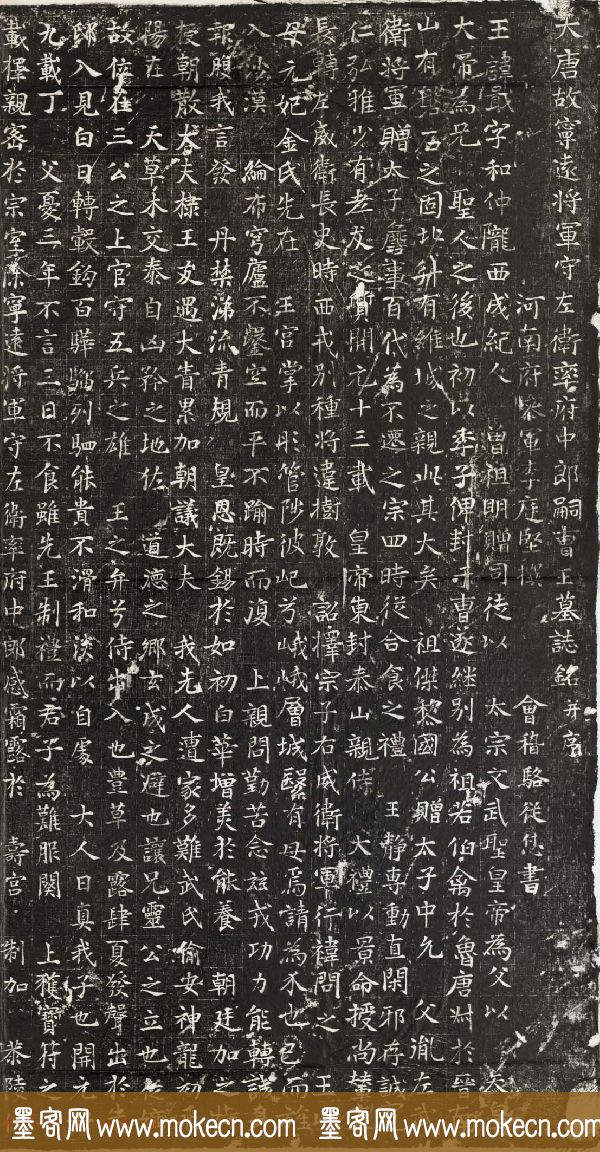 大唐故寧遠將軍守左衛率府中郎嗣曹王墓誌銘并序
河南府參軍李庭堅撰 會稽駱從悠書
王諱戢字和仲隴西成紀人 曾祖明贈司徒以 太宗文武聖皇帝為父以
大帝為兄 聖人之後也初以季子俾封于曹遂繼別為祖若伯禽於魯唐叔於晉
山有盤石之固 有維城之親此其大矣 祖傑黎國公贈太子中允 父胤左武
衛將軍贈太子詹事百代為不遷之宗四時從合食之禮 王靜專動直閑邪存誠
仁孜雅少有老成之質開元十三載 皇帝東封泰山親侍 大禮以景命授尚輦
長轉左威衛長史時西戎別種將違樹敦 詔擇宗子右威衛將軍行禕問之 王
母元妃金氏先在 王官掌以彤管陟彼屺兮峨峨層城翳有母焉請為不也已而
入沙漠 綸布穹廬不鑿空而平不踰時而復 上親問勤苦念茲我功力能轉
報願我言發 丹禁涕流青規 皇恩既錫於如初白華增美於能養 朝廷加之
授朝散大夫棣王友遇大眚累加朝議大夫 我先人遭家多難武氏偷安神龍初
陽在 天草木交泰自凶矜之地佐 道德之鄉玄成之避也讓兄靈公之立也
故位在三公之上官守五兵之雄 王之弁兮侍出入也豊草及露肆夏發聲出於
邸入見白日轉轂鈞百驊騮列駟能貴不滑和淡以自處 大人日真我子也開元
九載丁 父憂三年不言三日不食雖先王制禮而君子為難服闋 上獲寶符之
載擇親密於宗室 寧遠將軍守左衛率府中郎感霜露於 壽宮 制加 恭陵
墨客网 www.mokecn.com 墨客网 www.mokecn.com